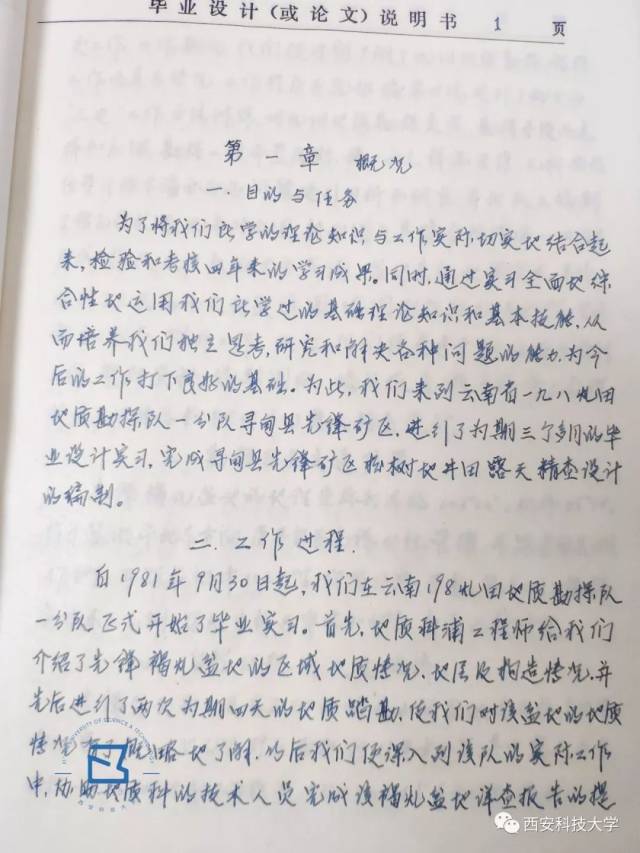 毕业设计(或论文)说明书 1 页
第一章 概况
一. 目的与任务
为了将我们所学的理论知识与工作实际切实地结合起
来,检验和考核四年来的学习成果。同时,通过实习全面地综
合性地运用我们所学过的基础理论知识和基本技能,从
而培养我们独立思考,研究和解决各种问题的能力,为今
后的工作打下良好的基础。为此,我们来到云南省一九八煤田
地质勘探队一分队寻甸县先锋矿区,进行了为期三个多月的毕
业设计实习,完成寻甸县先锋矿区松树地井田露天精查设计
的编制。
二. 工作过程.
自1981年9月30日起,我们在云南198煤田地质勘探队
一分队正式开始了毕业实习。首先,地质科浦工程师给我们
介绍了先锋褐煤盆地的区域地质情况,地层及构造情况,并
先后进行了两次为期四天的地质踏勘,使我们对该盆地的地质
情况有了概略地了解,尔后我们便深入到该队的实际工作
中,协助地质科的技术人员完成该褐煤盆地详查报告的提
西安科技大学